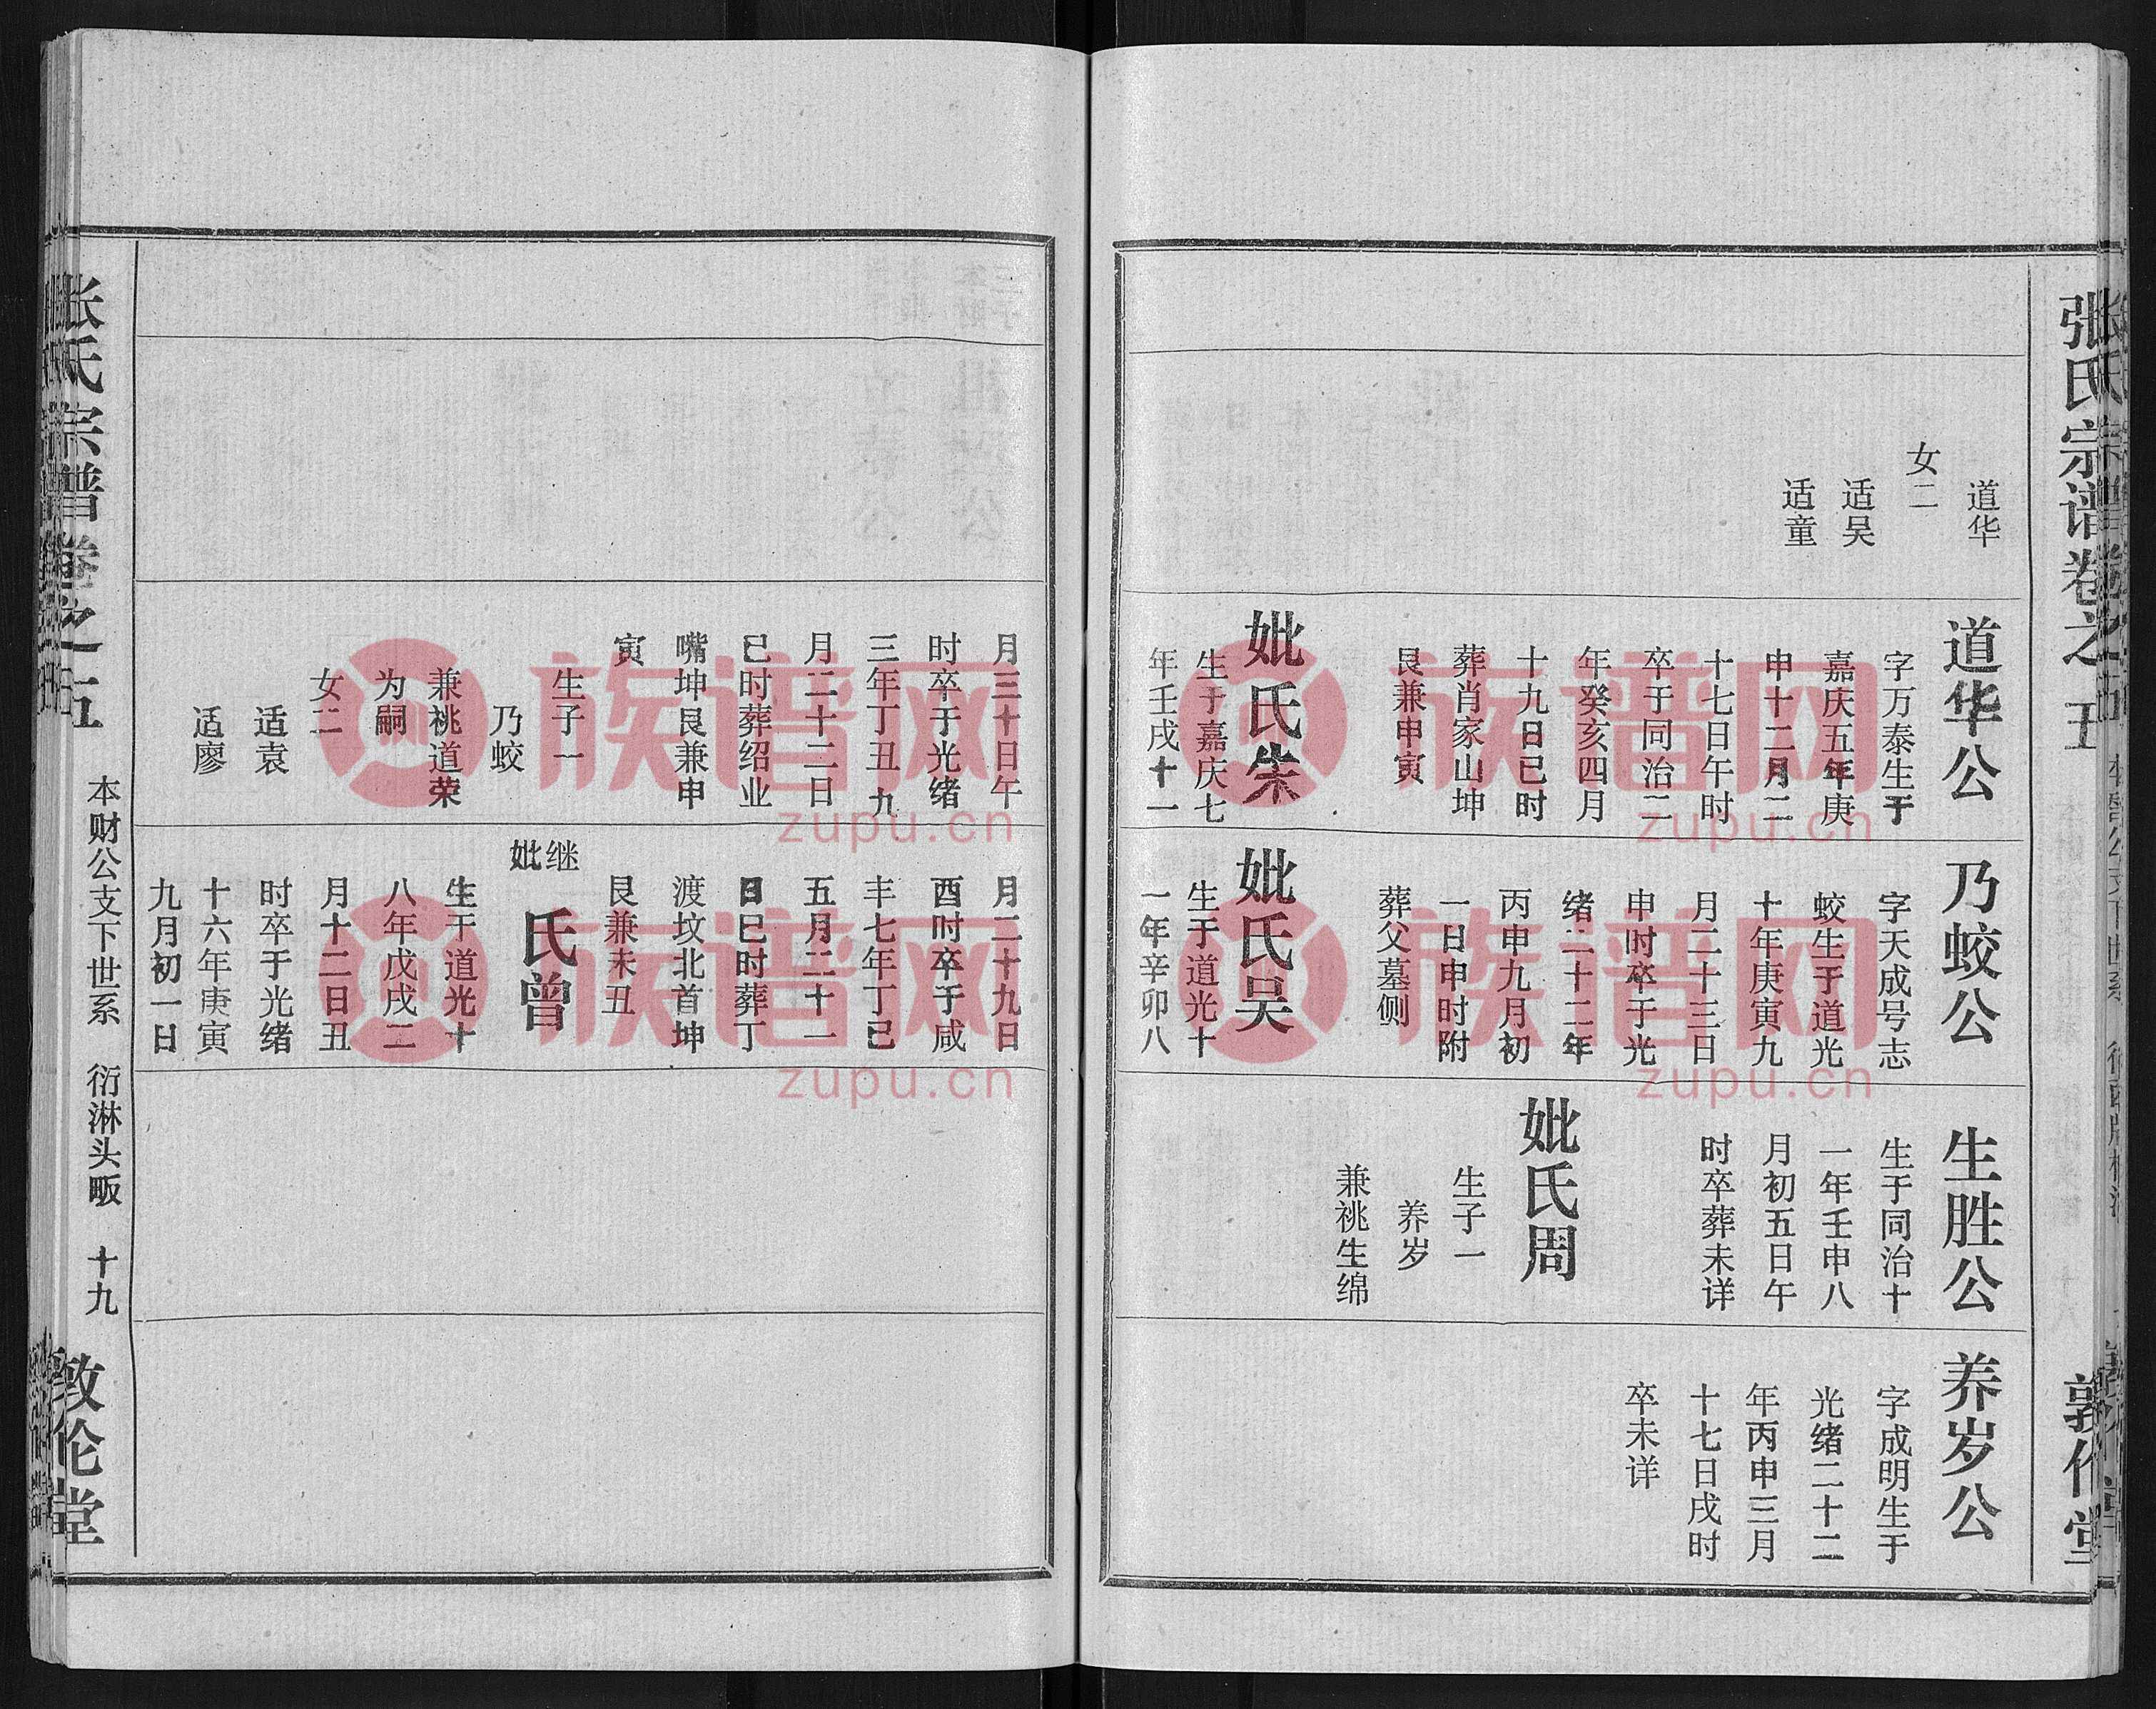 张氏宗谱卷之五
敦伦堂
道华
女二
适吴
适童
道华公
字万泰生于
嘉庆五年庚
申十二月二
十七日午时
卒于同治二
年癸亥四月
十九日巳时
葬肖家山坤
艮兼申寅
妣氏朱
生于嘉庆七
年壬戌十一
乃蛟公
字天成号志
蛟生于道光
十年庚寅九
月二十三日
申时卒于光
绪二十二年
丙申九月初
一日申时附
葬父墓侧
妣氏吴
生于道光十
一年辛卯八
生胜公
生于同治十
一年壬申八
月初五日午
时卒葬未详
妣氏周
生子一
养岁
兼祧生绵
养岁公
字成明生于
光绪二十二
年丙申三月
十七日戌时
卒未详
月三十日午
时卒于光绪
三年丁丑九
月二十二日
巳时葬绍业
嘴坤艮兼申
寅
生子一
乃蛟
兼祧道荣
为嗣
女二
适袁
适廖
月二十九日
酉时卒于咸
丰七年丁巳
五月二十一
日巳时葬丁
渡坟北首坤
艮兼未丑
继妣
氏曾
生于道光十
八年戊戌二
月十二日丑
时卒于光绪
十六年庚寅
九月初一日
张氏宗谱卷之五
本财公支下世系 衍淋头畈 十九
敦伦堂
族谱网
zupu.cn
族谱网
zupu.cn
族谱网
zupu.cn
族谱网
zupu.cn